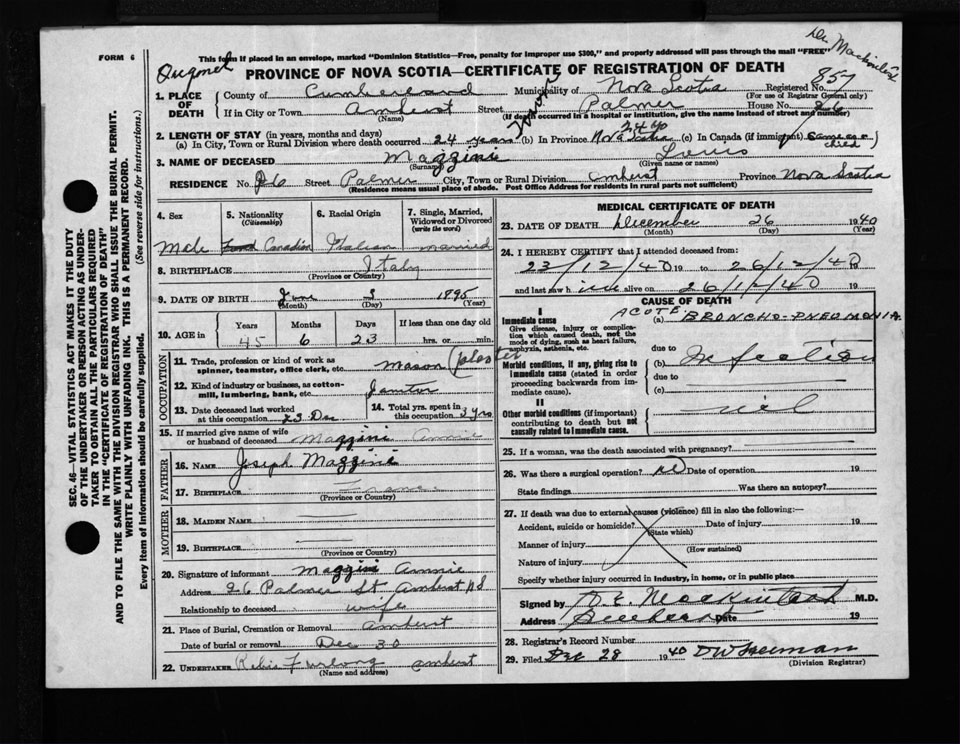 FORM 6
This form if placed in an envelope, marked "Dominion Statistics—Free, penalty for improper use $300," and properly addressed will pass through the mail "FREE"
PROVINCE OF NOVA SCOTIA—CERTIFICATE OF REGISTRATION OF DEATH
1. PLACE OF DEATH
County of Cumberland Municipality of Nova Scotia Registered No. 857
(For use of Registrar General only)
If in City or Town Amherst Street Palmer House No. 26
(Name) (If death occurred in a hospital or institution, give the name instead of street and number)
2. LENGTH OF STAY (in years, months and days)
(a) In City, Town or Rural Division where death occurred 24 years (b) In Province Nova Scotia (c) In Canada (if immigrant)
3. NAME OF DECEASED Mazzini Louis
(Surname) (Given name or names)
RESIDENCE No. 26 Street Palmer City, Town or Rural Division Amherst Province Nova Scotia
(Residence means usual place of abode. Post Office Address for residents in rural parts not sufficient)
4. Sex
5. Nationality (Citizenship)
6. Racial Origin
7. Single, Married, Widowed or Divorced (write the word)
Male Canadian Italian married
8. BIRTHPLACE Italy
(Province or Country)
9. DATE OF BIRTH June 3 1895
(Month) (Day) (Year)
10. AGE in
Years Months Days If less than one day old
45 6 23 hrs. or min.
OCCUPATION
11. Trade, profession or kind of work as spinner, teamster, office clerk, etc. Mason
12. Kind of industry or business, as cotton-mill, lumbering, bank, etc. Janitor
13. Date deceased last worked at this occupation 23 Dec
14. Total yrs. spent in this occupation 3 yrs
15. If married give name of wife or husband of deceased Mazzini Annie
FATHER
16. NAME Joseph Mazzini
17. BIRTHPLACE France
(Province or Country)
MOTHER
18. MAIDEN NAME —
19. BIRTHPLACE —
(Province or Country)
20. Signature of informant Mazzini Annie
Address 26 Palmer St. Amherst NS
Relationship to deceased wife
21. Place of Burial, Cremation or Removal Amherst
Date of burial or removal Dec 30
22. UNDERTAKER Amherst
(Name and address)
MEDICAL CERTIFICATE OF DEATH
23. DATE OF DEATH December 26 1940
(Month) (Day) (Year)
24. I HEREBY CERTIFY that I attended deceased from:
23/12/40 19 to 26/12/40
and last saw him alive on 26/12/40
CAUSE OF DEATH
I
Immediate cause
Give disease, injury or complication which caused death, not the mode of dying, such as heart failure, asphyxia, asthenia, etc.
(a) ACUTE BRONCHO-PNEUMONIA
due to
Morbid conditions, if any, giving rise to immediate cause (stated in order proceeding backwards from immediate cause).
(b) Infection
due to
(c)
II
Other morbid conditions (if important) contributing to death but not causally related to immediate cause.
nil
25. If a woman, was the death associated with pregnancy?
26. Was there a surgical operation? no Date of operation 19
State findings Was there an autopsy?
27. If death was due to external causes (violence) fill in also the following:—
Accident, suicide or homicide? Date of injury 19
(State which)
Manner of injury
(How sustained)
Nature of injury
Specify whether injury occurred in industry, in home, or in public place
Signed by D. E. Mackintosh M.D.
Address Date 19
28. Registrar's Record Number
29. Filed Dec 28 1940 DW Freeman
(Division Registrar)
SEC. 46—VITAL STATISTICS ACT MAKES IT THE DUTY
OF THE UNDERTAKER OR PERSON ACTING AS UNDERTAKER TO OBTAIN ALL THE PARTICULARS REQUIRED
IN THE "CERTIFICATE OF REGISTRATION OF DEATH"
AND TO FILE THE SAME WITH THE DIVISION REGISTRAR WHO SHALL ISSUE THE BURIAL PERMIT.
WRITE PLAINLY WITH UNFADING INK. THIS IS A PERMANENT RECORD.
Every item of information should be carefully supplied. (See reverse side for instructions.)